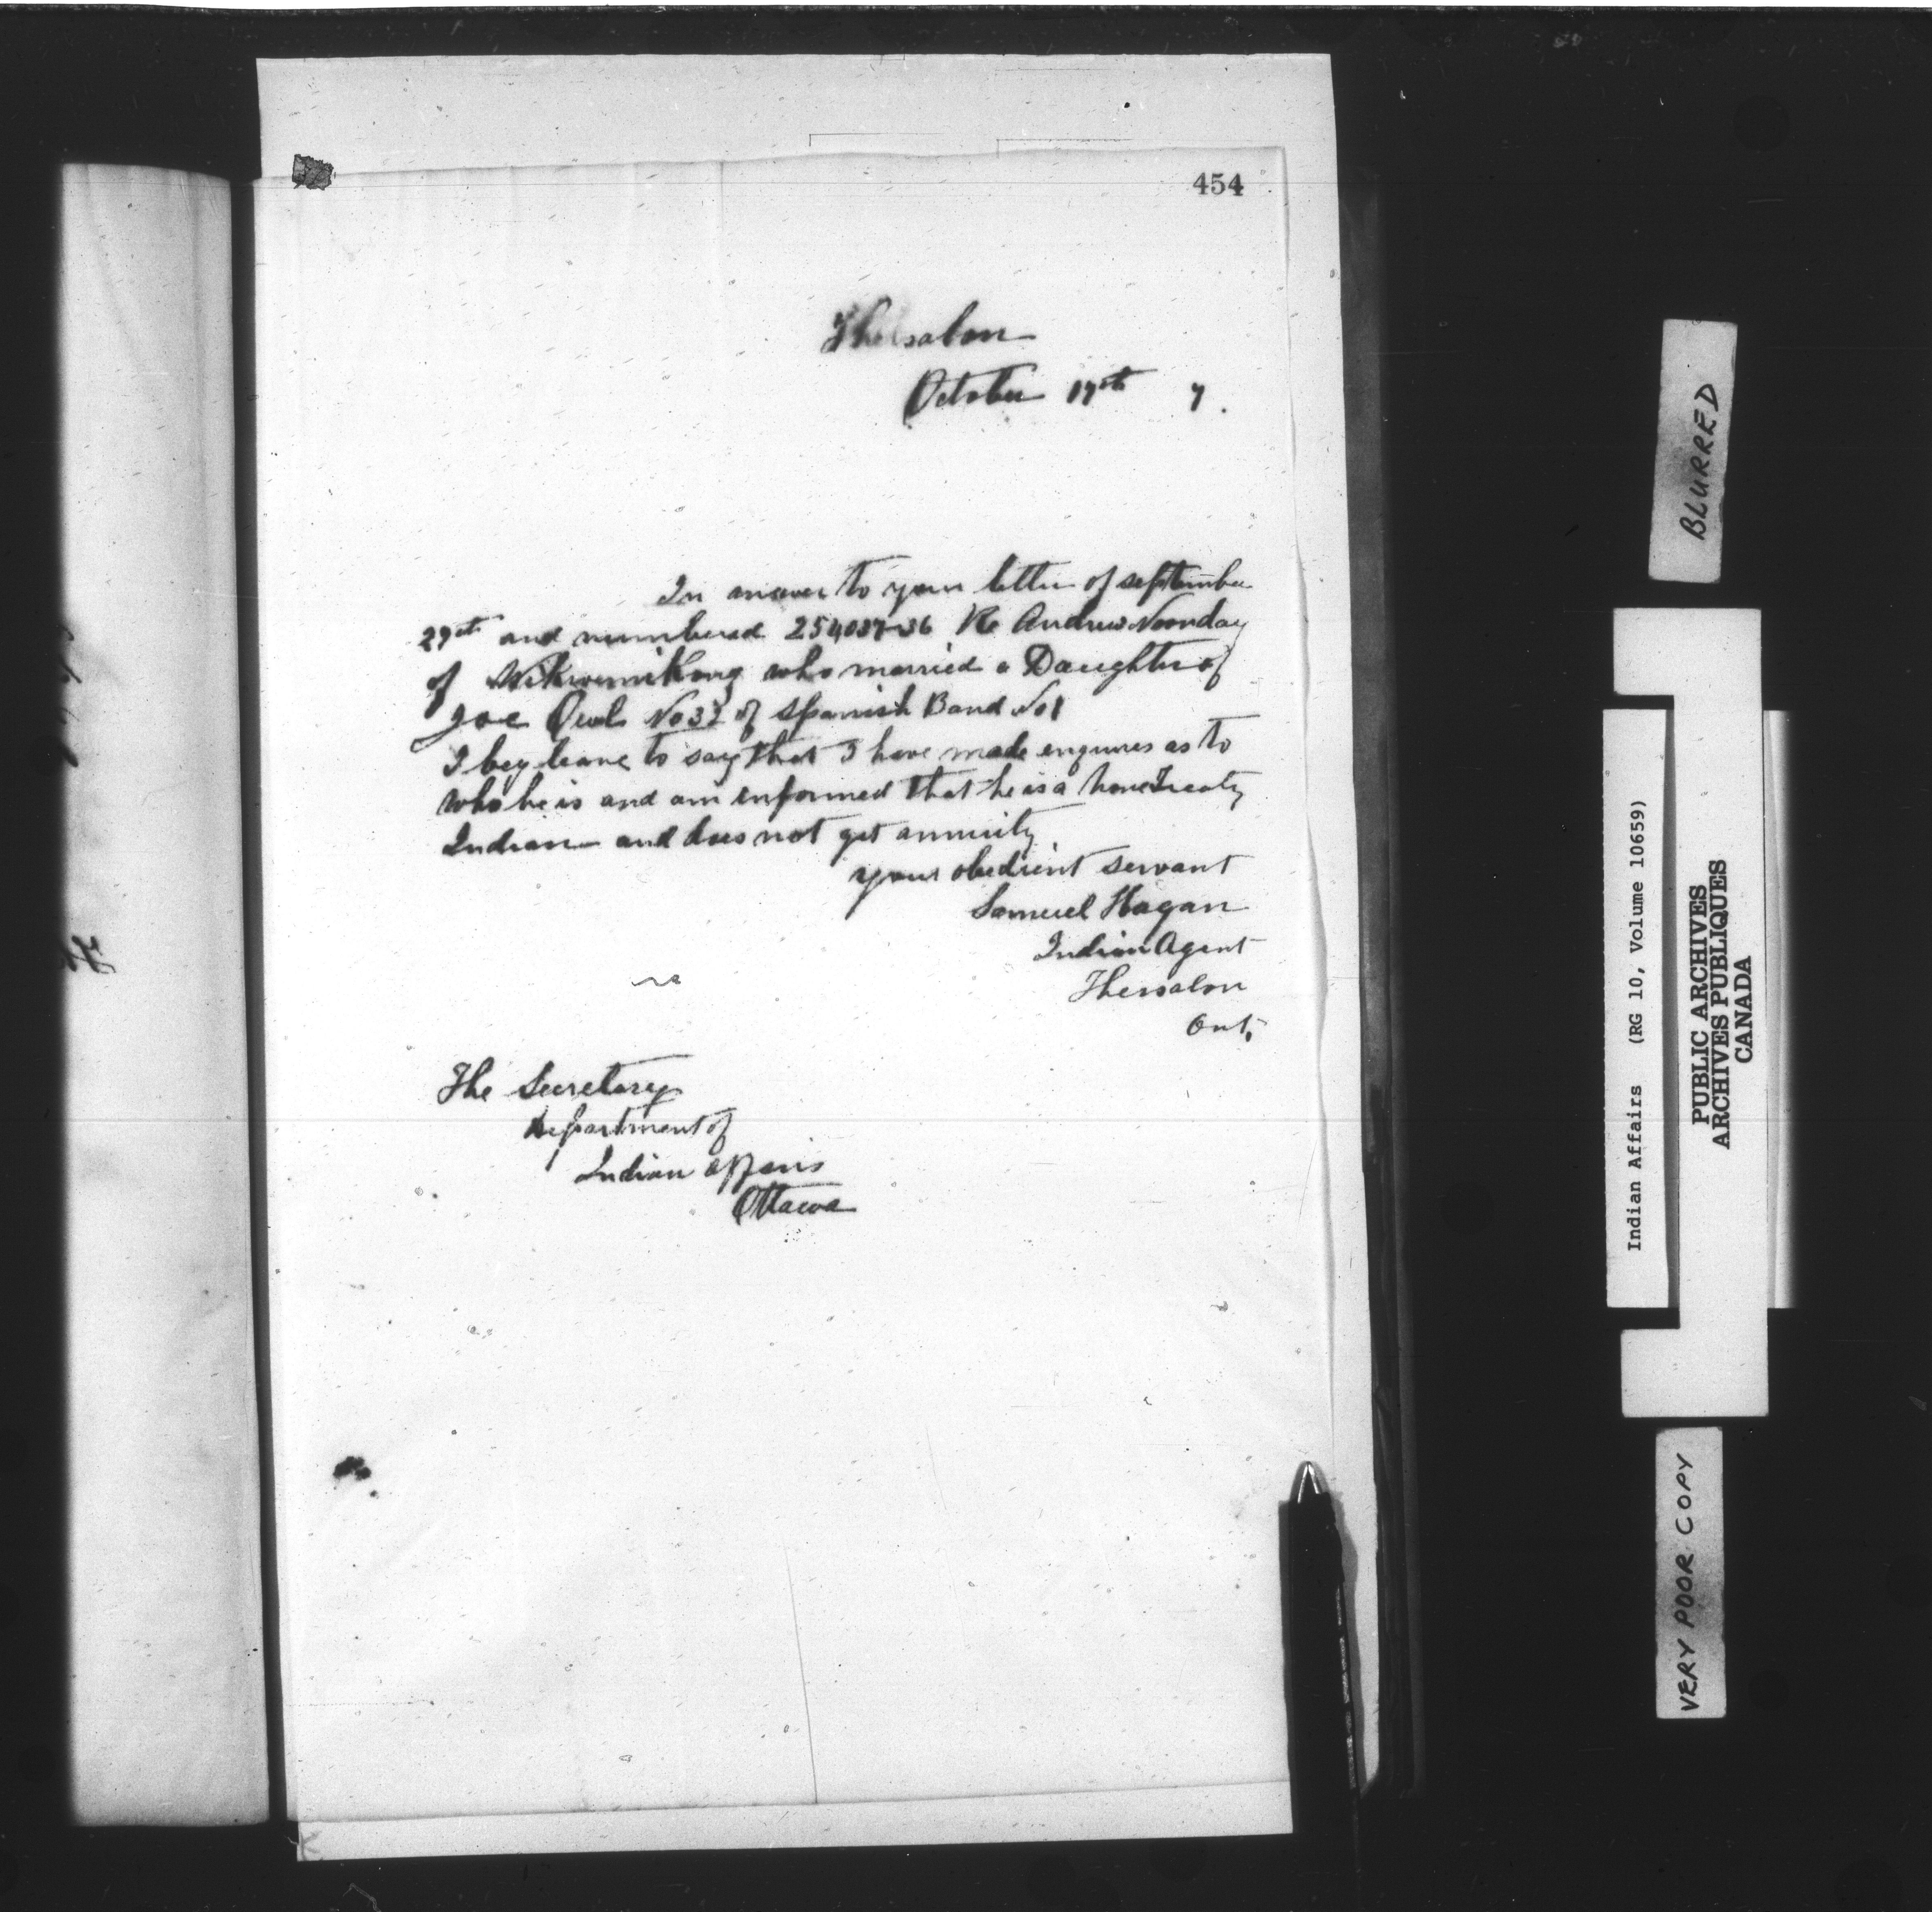 454
Thessalon
October 17th 7.
In answer to your letter of september
27th and numbered 254037-36 Re Andrew Noonday
of Wikwemikong who married a Daughter of
Joe Owl No 32 of Spanish Band No 1
I beg leave to say that I have made enquires as to
who he is and am informed that he is a None Treaty
Indian and does not get annuity
your obedient servant
Samuel Hagan
Indian Agent
Thessalon
Ont.
The Secretary
Department of
Indian Affairs
Ottawa
BLURRED
Indian Affairs (RG 10, Volume 10659)
PUBLIC ARCHIVES
ARCHIVES PUBLIQUES
CANADA
VERY POOR COPY